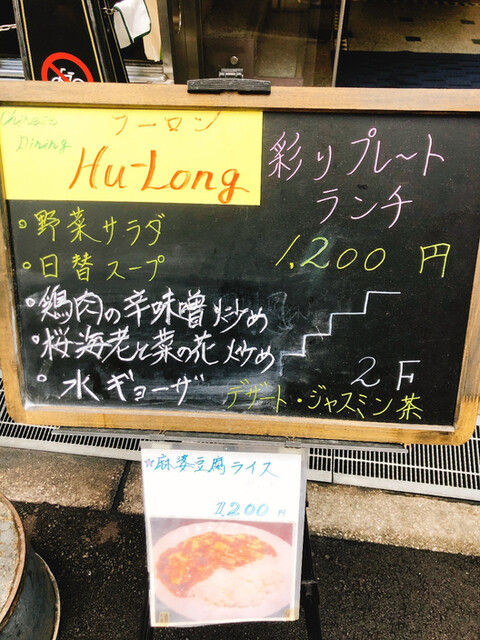 Chinese
Dining
フーロン
Hu-Long
彩りプレート
ランチ
1,200円
・野菜サラダ
・日替スープ
・鶏肉の辛味噌炒め
・桜海老と菜の花炒め
・水ギョーザ
2F
デザート・ジャスミン茶
☆麻婆豆腐ライス
1,200円